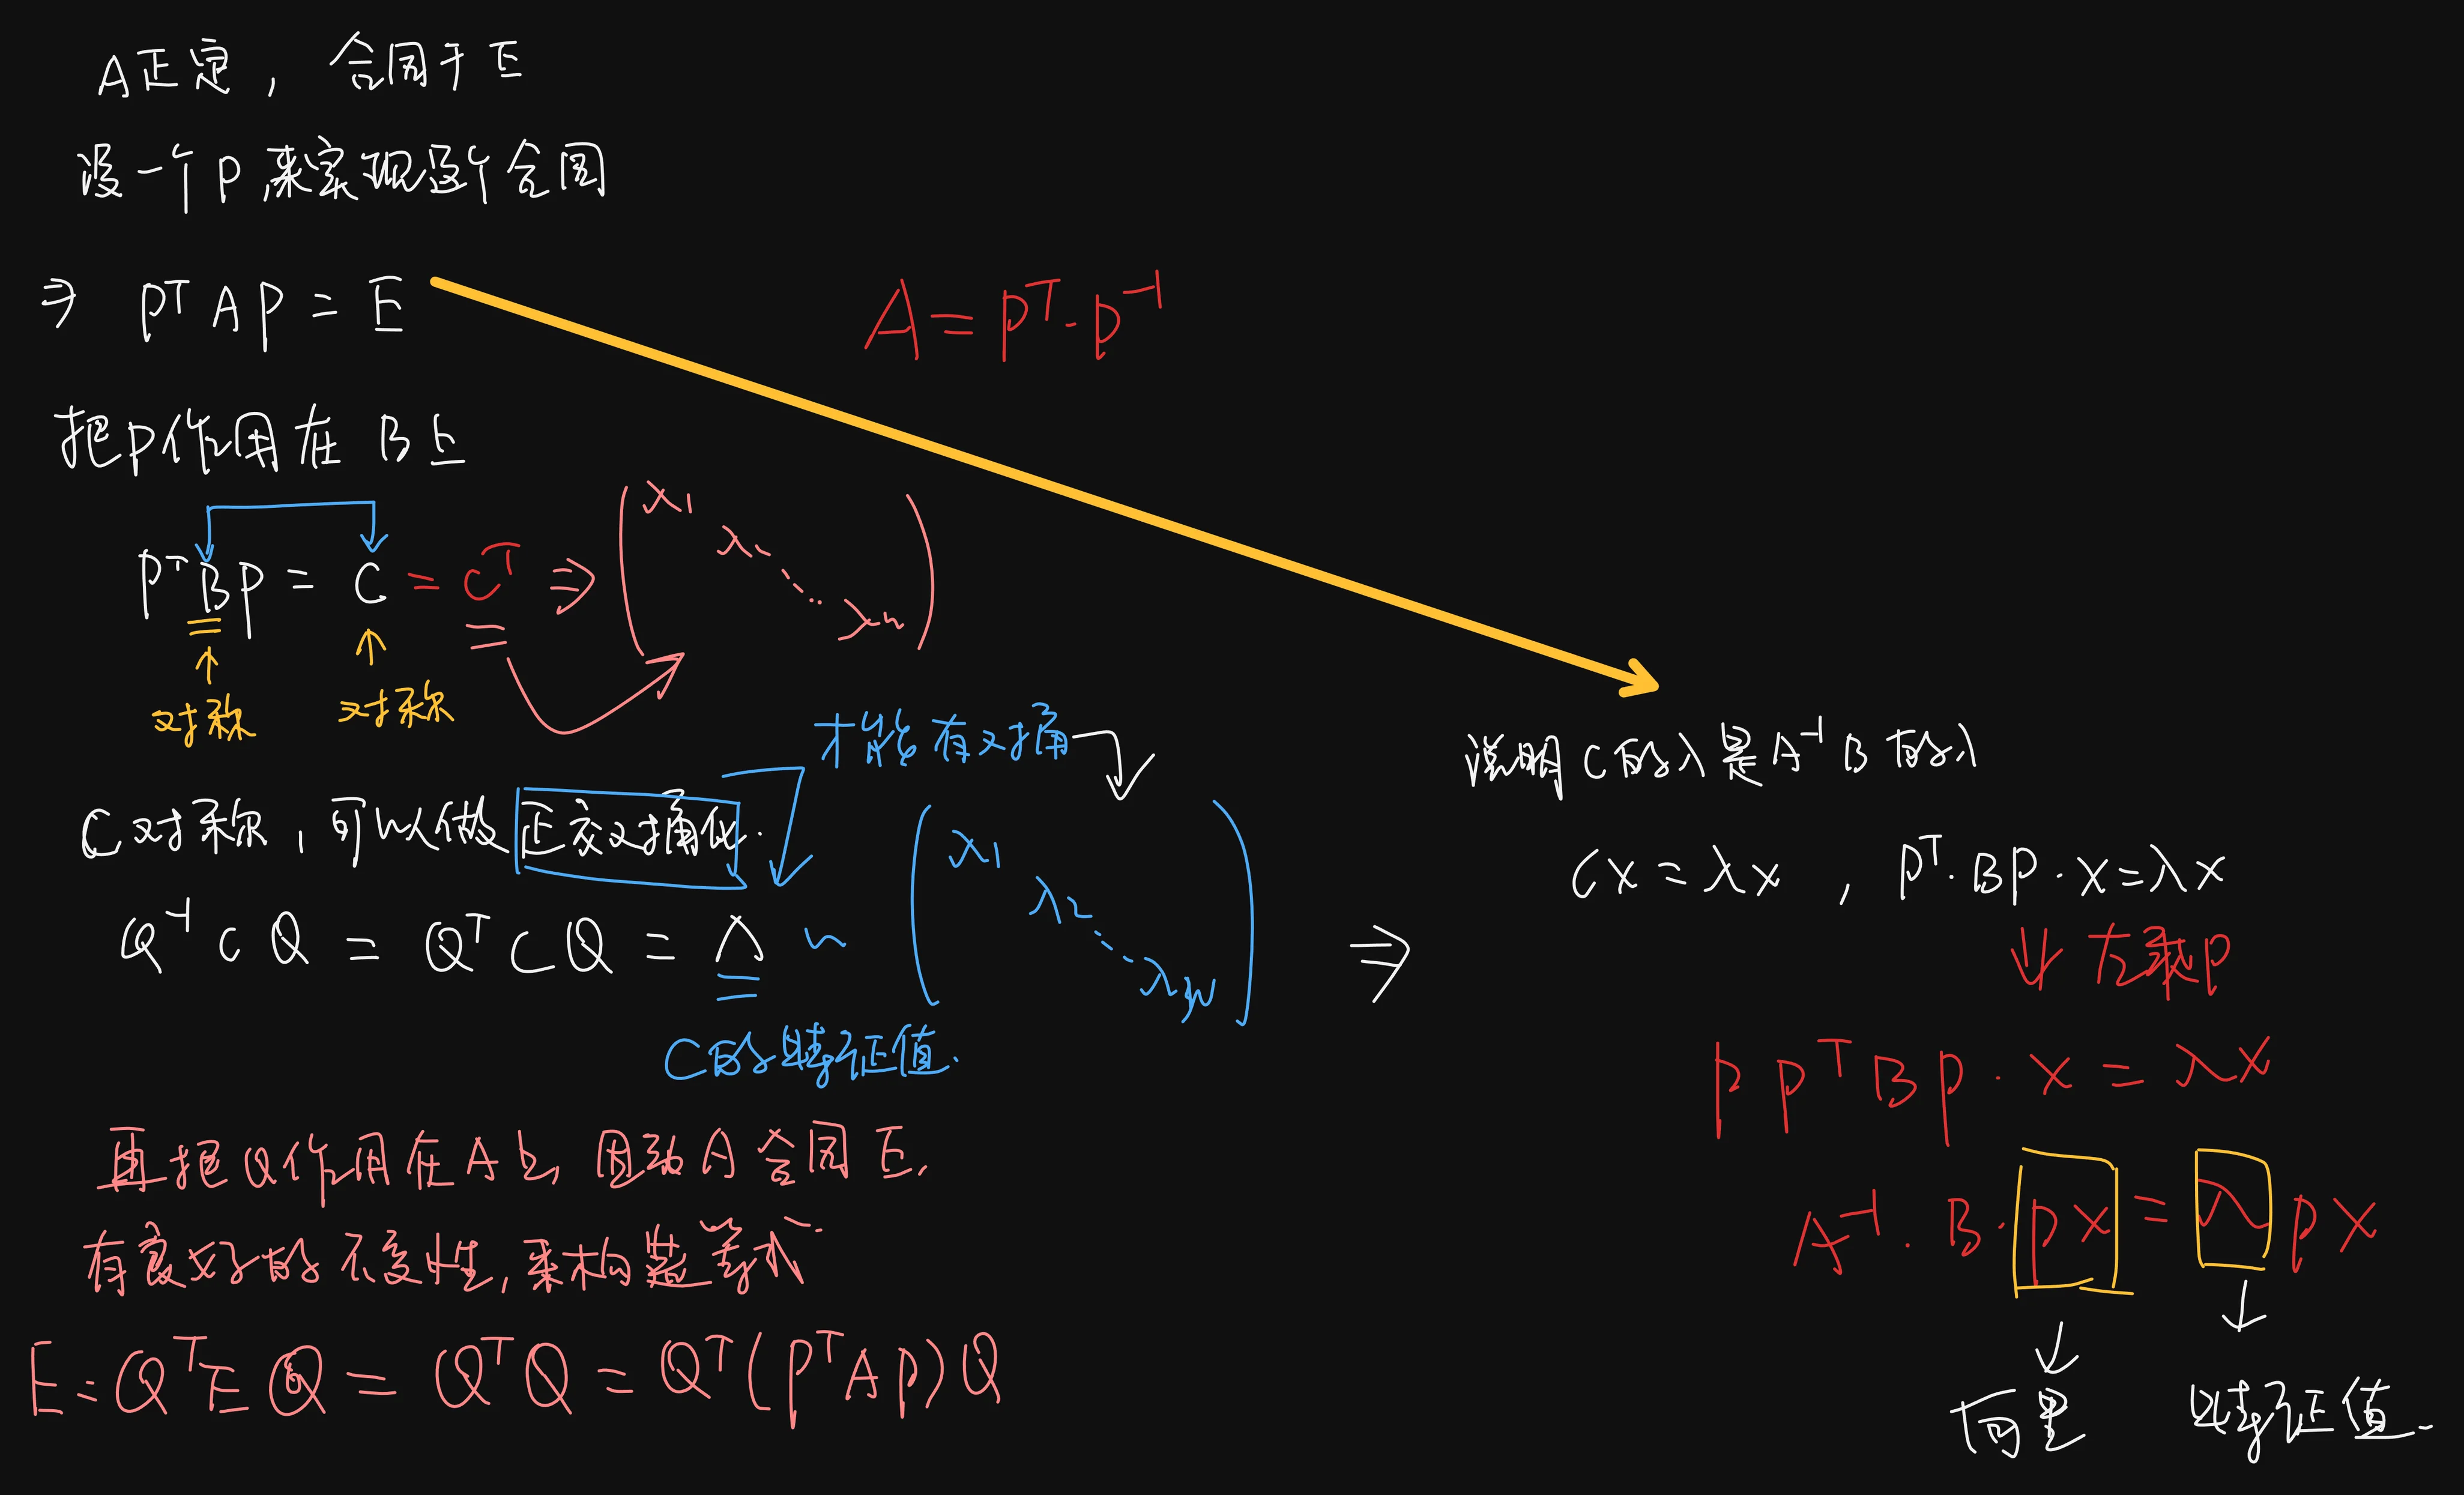 A正定，合同于E
设一个P来实现这个合同
⇒ PᵀAP = E
A = Pᵀ·P⁻¹
把P作用在B上
PᵀBP = C = Cᵀ ⇒ (λ₁ λ₂ ⋱ λₙ)
对称 对称
才能有对角
C对称，可以做正交对角化.
Q⁻¹CQ = QᵀCQ = Λ ~ (λ₁ λ₂ ⋱ λₙ) ⇒
C的特征值.
再把Q作用在A上，因为A合同E，
有良好的不变性，来构造等式
E = QᵀEQ = QᵀQ = Qᵀ(PᵀAP)Q
说明C的λ是A⁻¹B的λ
Cx = λx ， Pᵀ·BP·x = λx
↓ 左乘P
PPᵀBP·x = λx
A⁻¹·B·Px = λPx
向量 特征值.